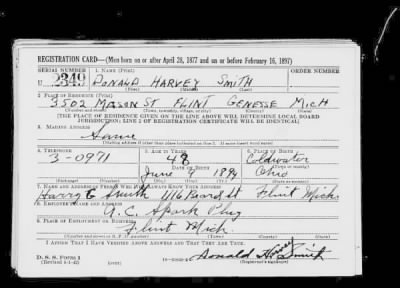 REGISTRATION CARD—(Men born on or after April 28, 1877 and on or before February 16, 1897)
SERIAL NUMBER 1. NAME (Print)
U 2349 DONALD HARVEY SMITH
2. PLACE OF RESIDENCE (Print)
3502 MASON ST FLINT GENESSE MICH
[THE PLACE OF RESIDENCE GIVEN ON THE LINE ABOVE WILL DETERMINE LOCAL BOARD
JURISDICTION; LINE 2 OF REGISTRATION CERTIFICATE WILL BE IDENTICAL]
3. MAILING ADDRESS
Same
4. TELEPHONE 5. AGE IN YEARS 6. PLACE OF BIRTH
3-0971 48 Coldwater
DATE OF BIRTH
June 7 1894 Ohio
7. NAME AND ADDRESS OF PERSON WHO WILL ALWAYS KNOW YOUR ADDRESS
Harry G Smith 1116 Flint Mich.
8. EMPLOYER'S NAME AND ADDRESS
A.C. Spark Plug
9. PLACE OF EMPLOYMENT OR BUSINESS
Flint Mich.
I AFFIRM THAT I HAVE VERIFIED ABOVE ANSWERS AND THAT THEY ARE TRUE.
D. S. S. Form 1
(Revised 4-1-42) Donald Harvey Smith
(Registrant's signature)